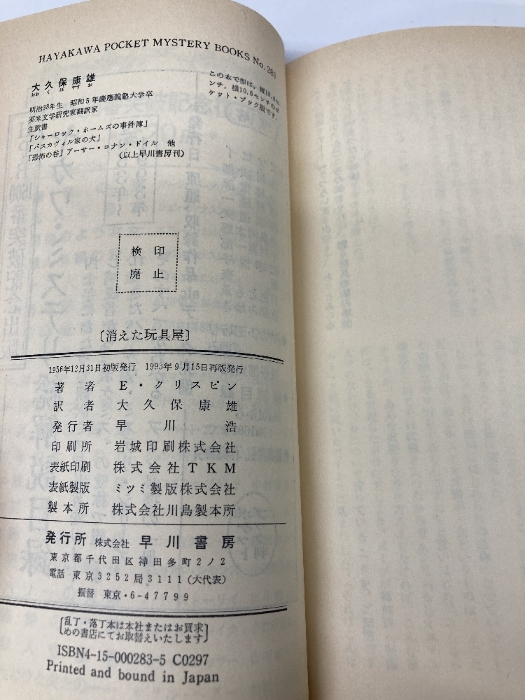 HAYAKAWA POCKET MYSTERY BOOKS No. 283
この本で型は、縦18.4セ
ンチ、横10.6センチのポ
ケット・ブック版です
大久保康雄
おおくぼやすお
明治38年生 昭和5年慶應義塾大学卒
英米文学研究家翻訳家
主訳書
『シャーロック・ホームズの事件簿』
『バスカヴィル家の犬』
『恐怖の谷』アーサー・コナン・ドイル 他
(以上早川書房刊)
検印
廃止
〔消えた玩具屋〕
1956年12月31日初版発行 1995年9月15日再版発行
著者 E・クリスピン
訳者 大久保康雄
発行者 早川浩
印刷所 岩城印刷株式会社
表紙印刷 株式会社TKM
表紙製版 ミツミ製版株式会社
製本所 株式会社川島製本所
発行所 株式会社 早川書房
東京都千代田区神田多町2ノ2
電話 東京3252局3111(大代表)
振替 東京・6-47799
〔乱丁・落丁本は本社またはお買求
めの書店にてお取替えいたします〕
ISBN4-15-000283-5 C0297
Printed and bound in Japan